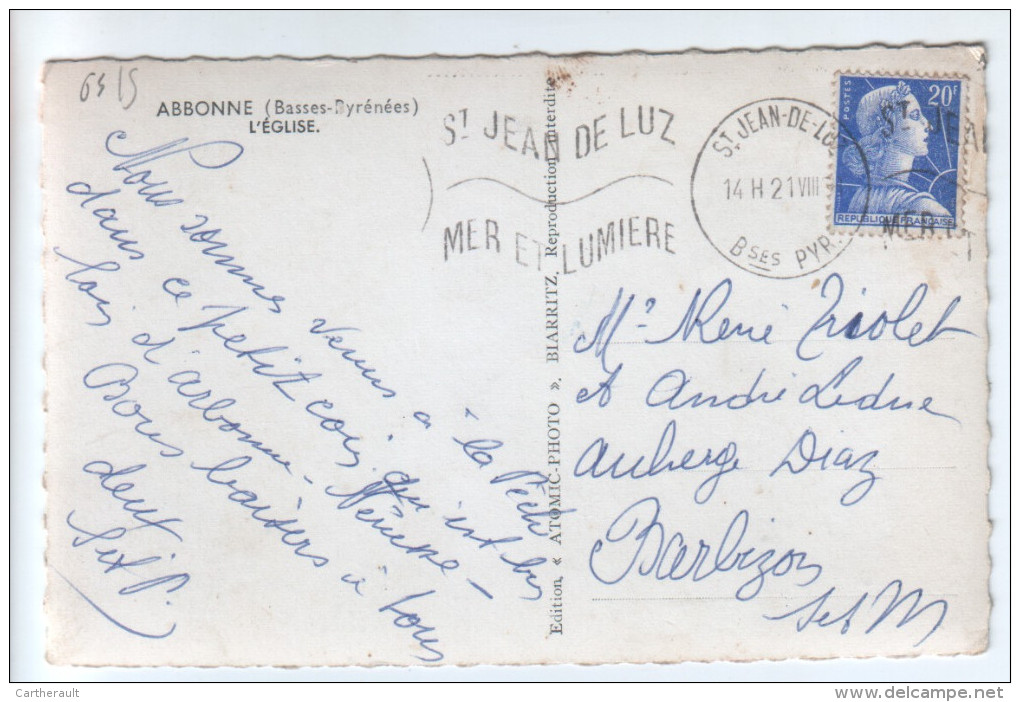 64 15
ABBONNE (Basses-Pyrénées)
L'ÉGLISE.
ST JEAN DE LUZ
MER ET LUMIERE
ST JEAN-DE-LUZ
14 H 21 VIII
BSES PYR.
POSTES
20F
REPUBLIQUE FRANÇAISE
ST JEA
MER E
Nous sommes venus à la Pêche
dans ce petit coin qui est bu
lois d'arbonne -
Bons baisers à tous
deux
Edition, « ATOMIC-PHOTO ». BIARRITZ. Reproduction interdite
Mr René Triolet
et André Ledue
Auberge Diaz
Barbizon
S et M
Cartherault
Delcampe.net